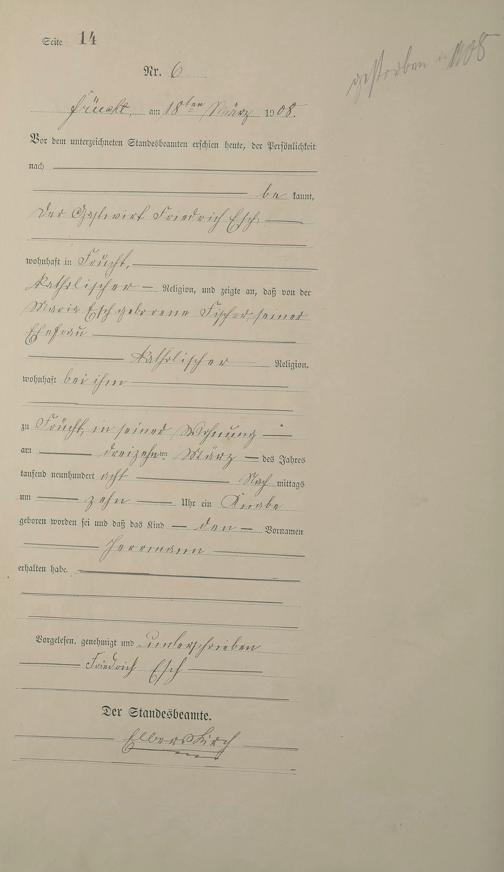 Seite 14
gestorben in 1908
Nr. 6
Frücht, am 18ten März 1908.
Vor dem unterzeichneten Standesbeamten erschien heute, der Persönlichkeit
nach
be kannt,
der Gastwirt Friedrich Esch
wohnhaft in Frücht,
katholischer Religion, und zeigte an, daß von der
Maria Esch geborene Fischer, seiner
Ehefrau
katholischer Religion,
wohnhaft bei ihm
zu Frücht, in seiner Wohnung
am dreizehnten März des Jahres
tausend neunhundert acht Nach mittags
um zehn Uhr ein Knabe
geboren worden sei und daß das Kind den Vornamen
Herrmann
erhalten habe.
Vorgelesen, genehmigt und unterschrieben
Friedrich Esch
Der Standesbeamte.
Elberskirch